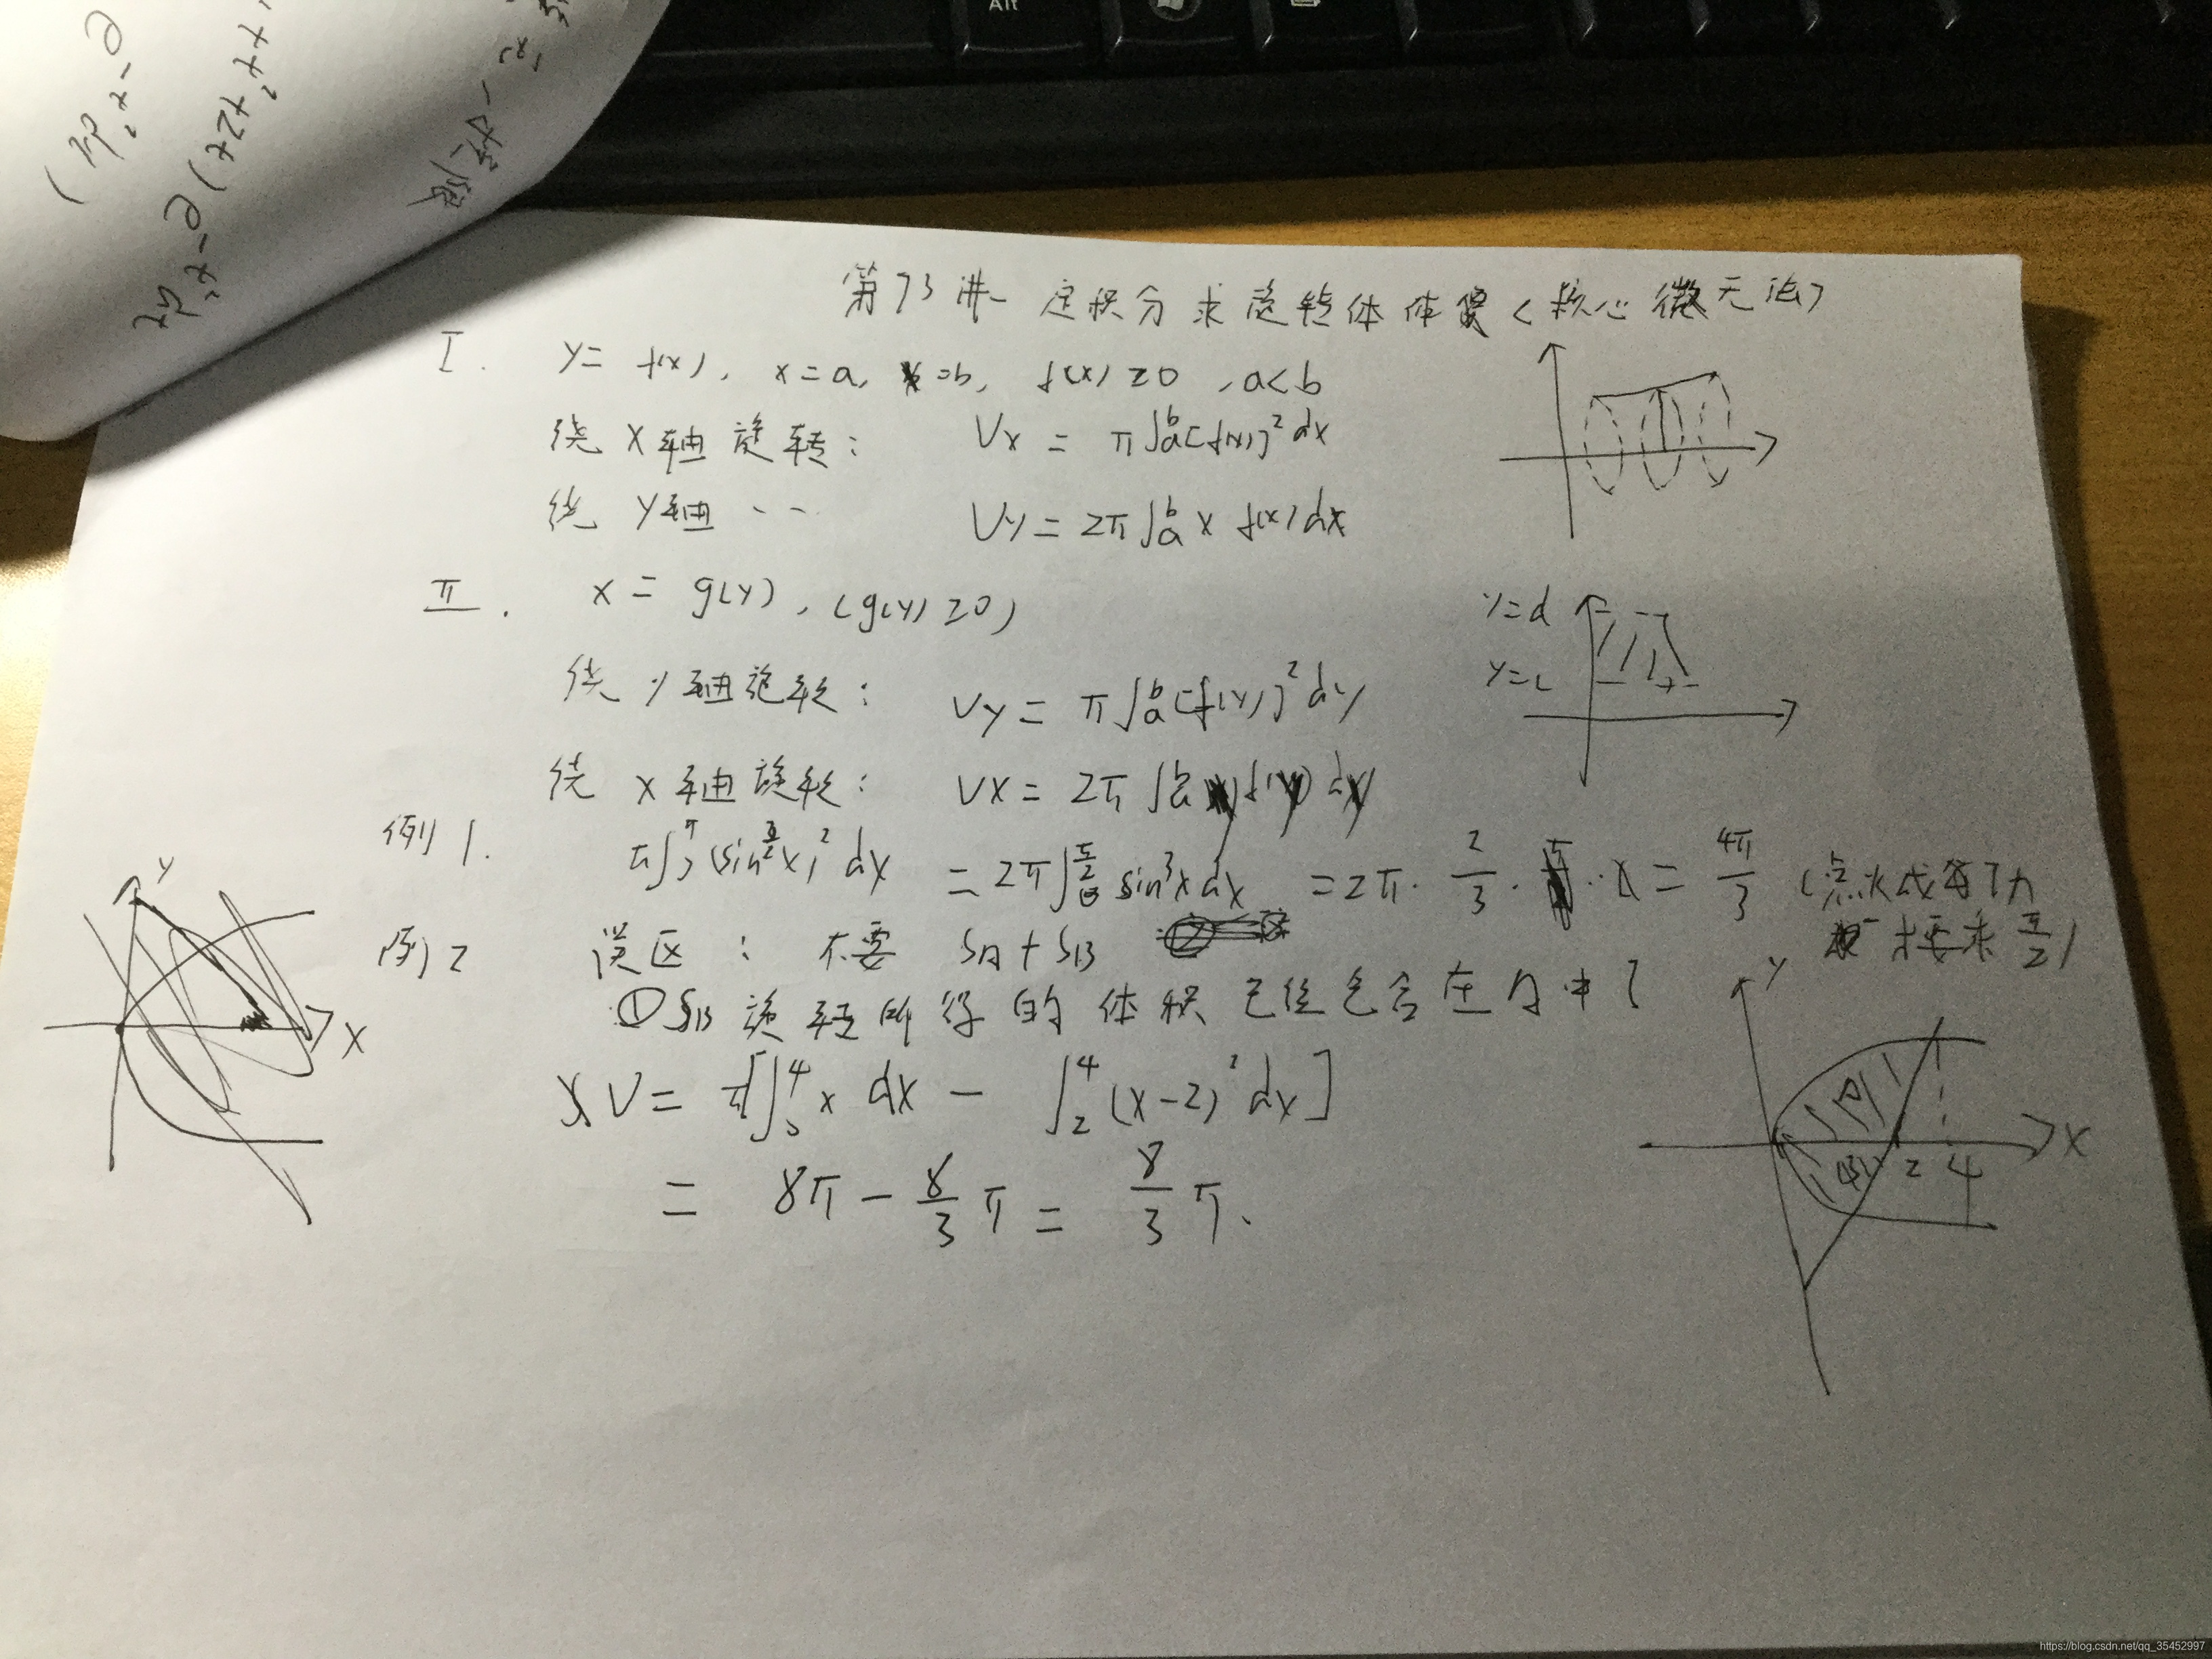 Alt
第73讲 定积分求旋转体体积（核心微元法）
I. y= f(x), x=a, x=b, f(x)≥0, a<b
绕x轴旋转: Vx = π∫_a^b [f(x)]^2 dx
绕y轴 -- Vy = 2π∫_a^b x f(x) dx
II. x = g(y), (g(y)≥0)
y=d
y=c
绕y轴旋转: Vy = π∫_a^b [f(y)]^2 dy
绕x轴旋转: Vx = 2π∫_a^b y f(y) dy
例1. π∫_0^π (sin^{3/2}x)^2 dx = 2π∫_0^{π/2} sin^3x dx = 2π· 2/3 · 1 = 4π/3 (点火成
才要乘 π/2)
例2 误区: 不要 SA+SB
① SB 旋转所得的体积已经包含在A中了
V= π[∫_0^4 x dx - ∫_2^4 (x-2)^2 dx]
= 8π - 8/3 π = 8/3 π.
y
x
y
(A)
(B)
2
4
x
https://blog.csdn.net/qq_35452997